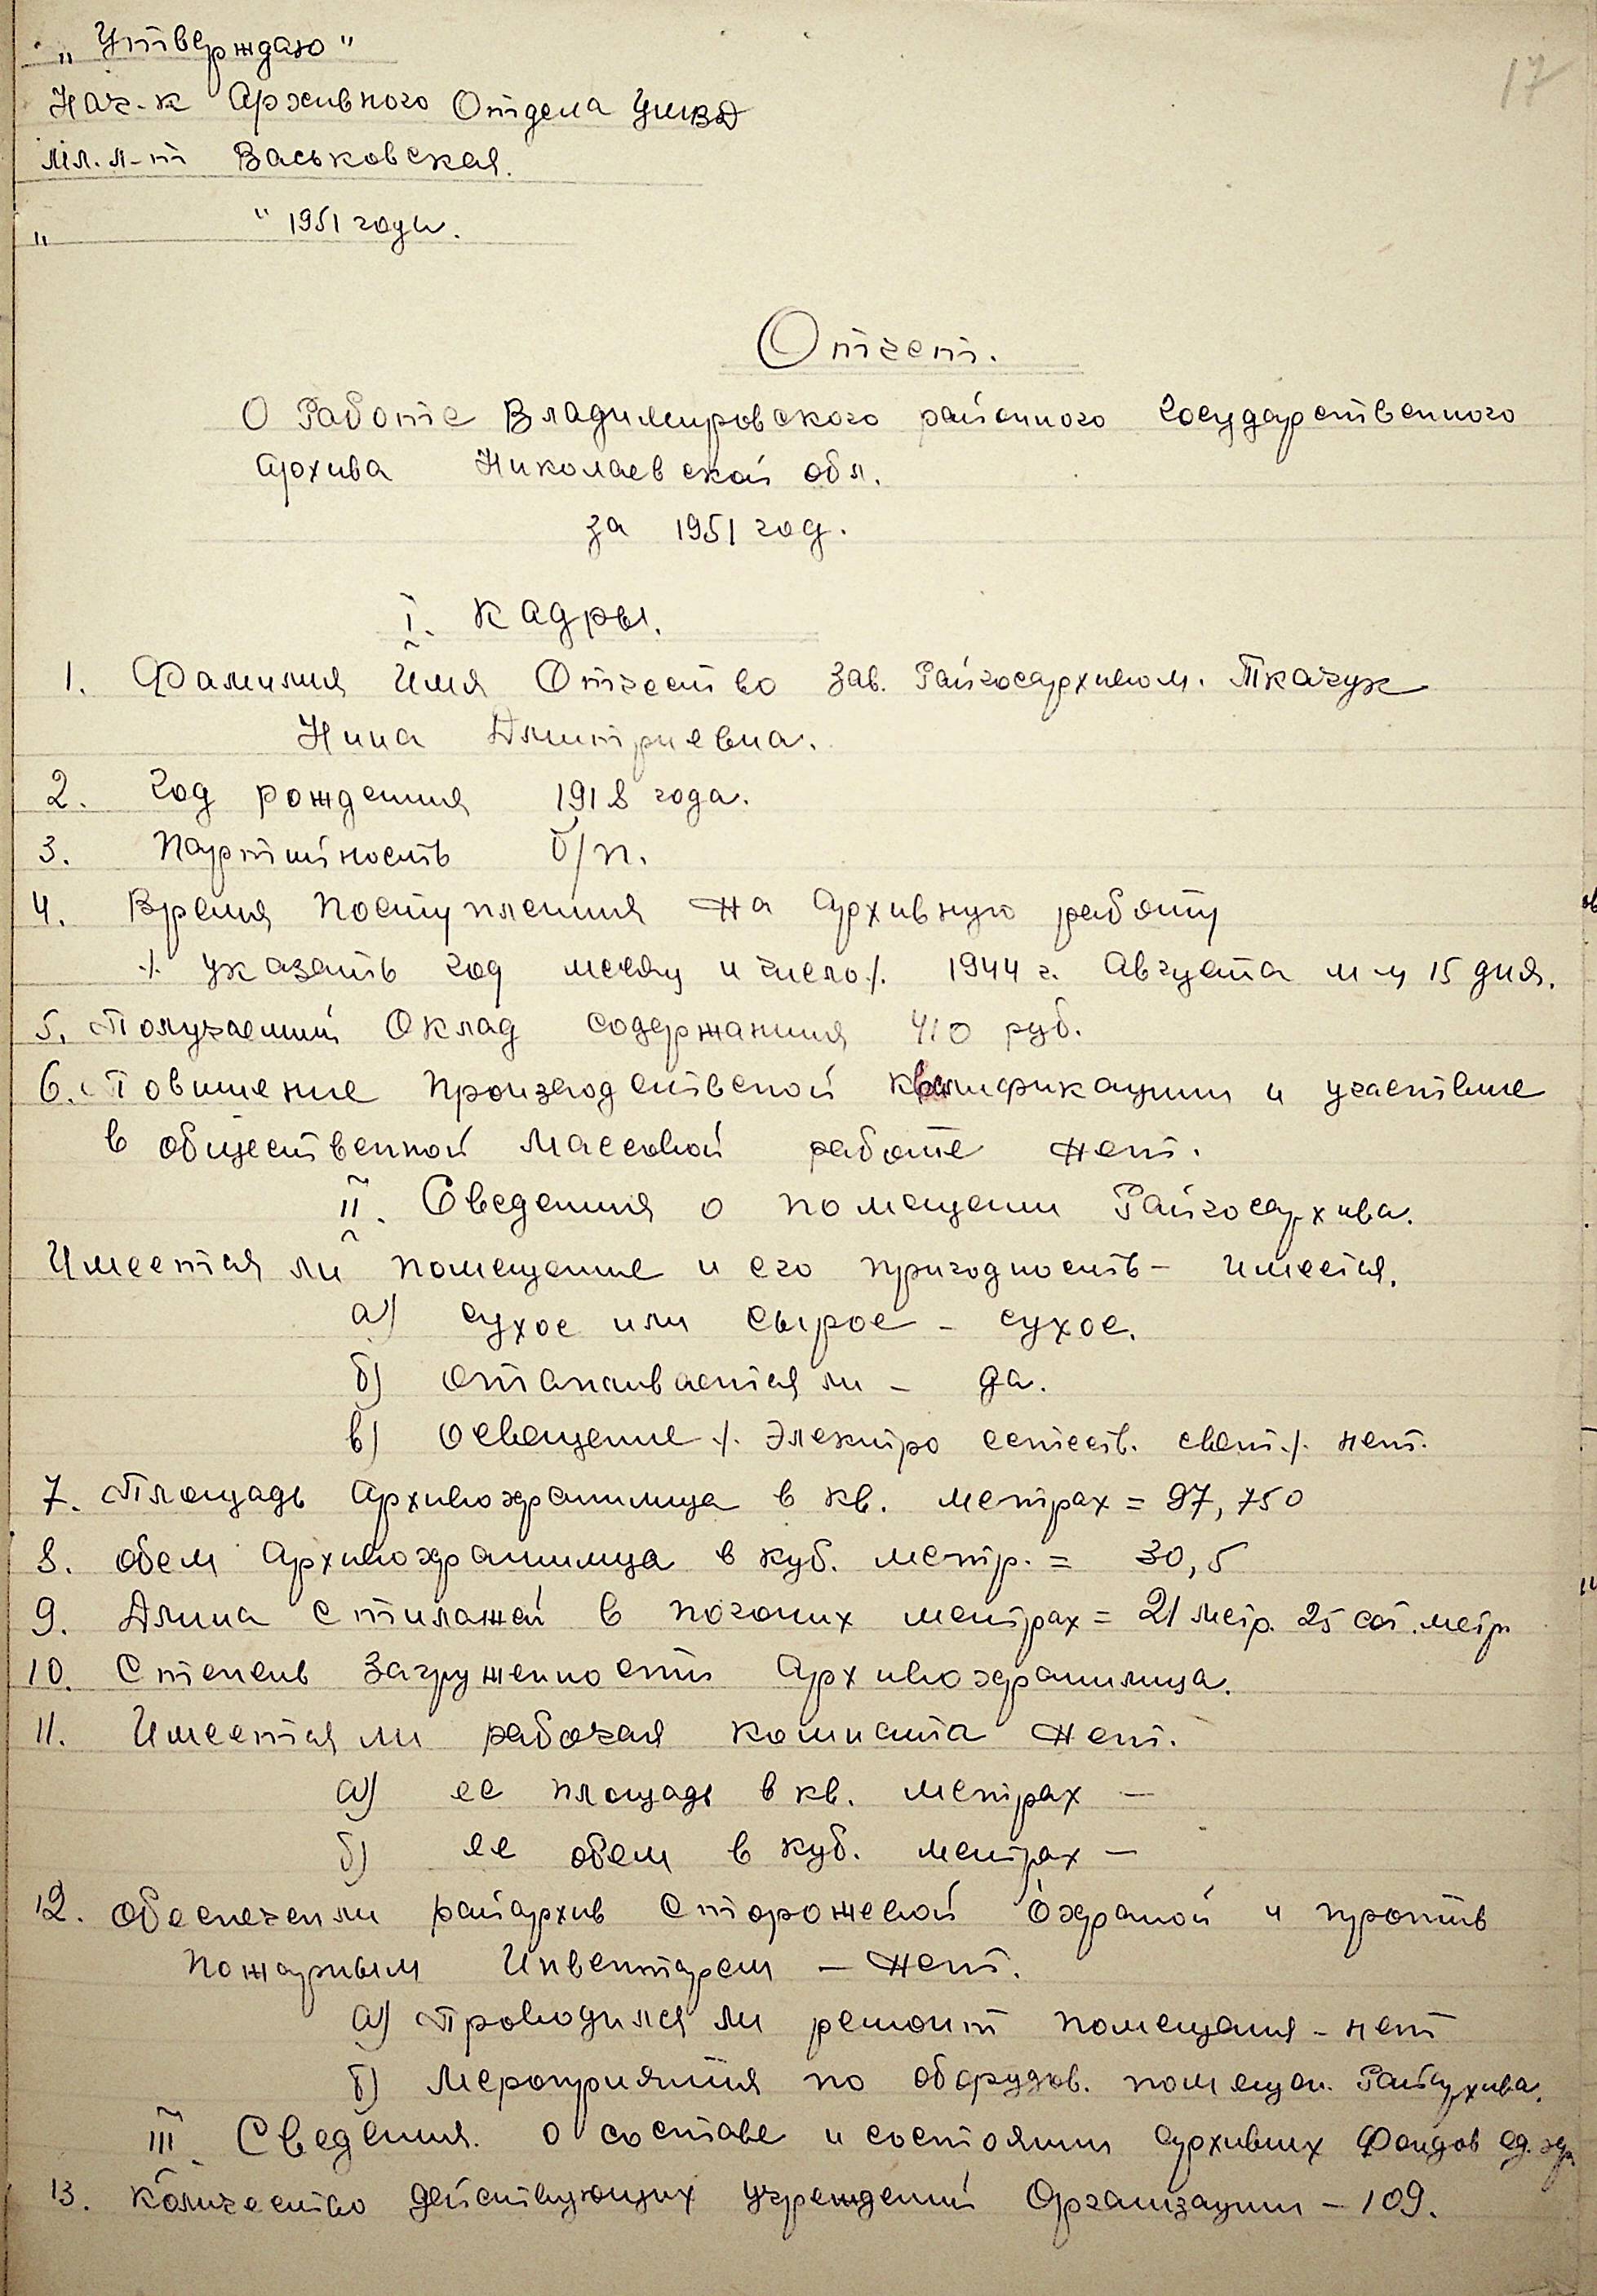 „Утверждаю"
17
Нач-к Архивного Отдела УМВД
мл. л-т Васьковская.
„ " 1951 года.
Отчет.
О Работе Владимировского районного Государственного
Архива Николаевской обл.
за 1951 год.
I. Кадры.
1. Фамилия Имя Отчество Зав. Райгосархивом. Ткачук
Нина Дмитриевна.
2. Год рождения 1918 года.
3. Партийность б/п.
4. Время поступления на архивную работу
./. указать год месяц и число./. 1944 г. Августа м-ц 15 дня.
5. Получаемый Оклад содержания 410 руб.
6. Повишение производственой квалификации и участвие
в общественной массовой работе нет.
II. Сведения о помещении Райгосархива.
Имеется ли помещение и его пригодность - имеется.
а) сухое или сырое - сухое.
б) отапливается ли - да.
в) освещение ./. электро естеств. свет./. нет.
7. Площадь Архивохранилища в кв. метрах = 97,750
8. обем Архивохранилища в куб. метр. = 30,5
9. Длина стилажей в погоних метрах = 21 метр. 25 сот. метр.
10. Степень загружености Архивохранилища.
11. Имеется ли рабочая комната нет.
а) ее площадь в кв. метрах —
б) ее обем в куб. метрах —
12. Обеспечен ли райархив Сторожевой Охраной и против
пожарным Инвентарем — нет.
а) Проводился ли ремонт помещения - нет
б) Мероприятия по оборудов. помещен. Райархива.
III. Сведения о составе и состоянии архивних Фондов ед. хр.
13. Количество действующих учреждений Организации — 109.